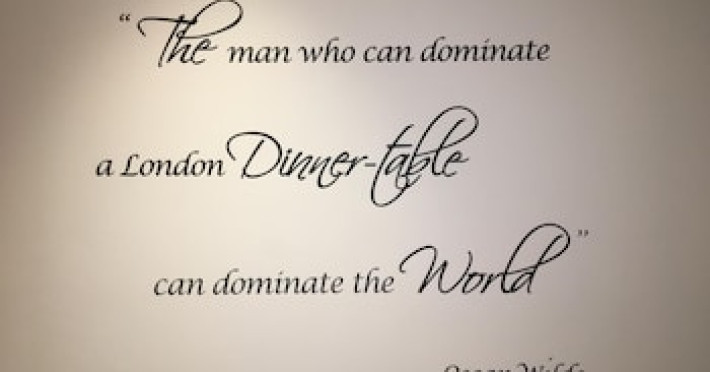 “The man who can dominate
a London Dinner-table
can dominate the World”
Oscar Wilde